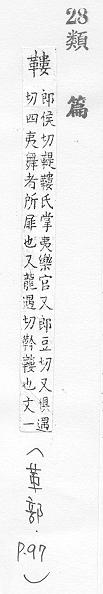 28
類
篇
鞻 郎侯切鞮鞻氏掌夷樂官又郎豆切又俱遇
切四夷舞者所屝也又龍遇切鞻也文一
(革部.
P.97)